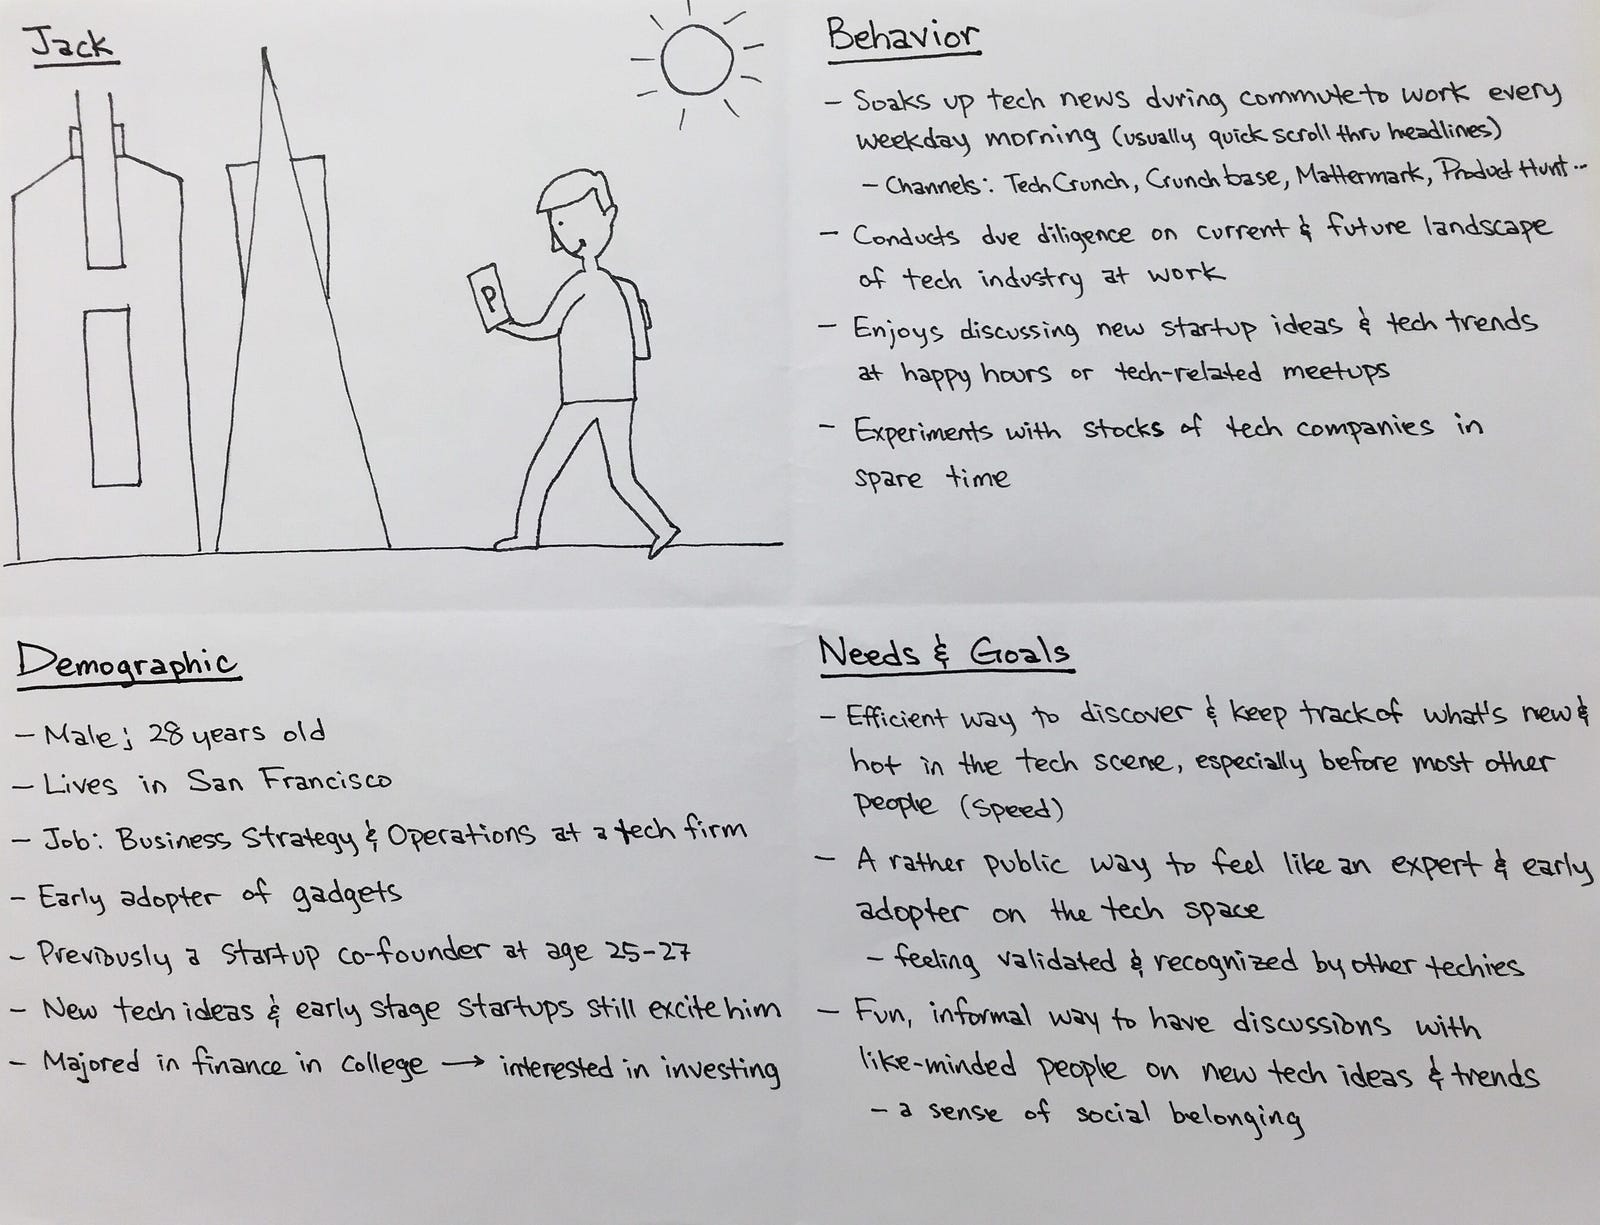 Jack
P
Behavior
- Soaks up tech news during commute to work every
weekday morning (usually quick scroll thru headlines)
- Channels: TechCrunch, Crunchbase, Mattermark, Product Hunt...
- Conducts due diligence on current & future landscape
of tech industry at work
- Enjoys discussing new startup ideas & tech trends
at happy hours or tech-related meetups
- Experiments with stocks of tech companies in
spare time
Demographic
- Male; 28 years old
- Lives in San Francisco
- Job: Business Strategy & Operations at a tech firm
- Early adopter of gadgets
- Previously a startup co-founder at age 25-27
- New tech ideas & early stage startups still excite him
- Majored in finance in college → interested in investing
Needs & Goals
- Efficient way to discover & keep track of what's new &
hot in the tech scene, especially before most other
people (speed)
- A rather public way to feel like an expert & early
adopter on the tech space
- feeling validated & recognized by other techies
- Fun, informal way to have discussions with
like-minded people on new tech ideas & trends
- a sense of social belonging